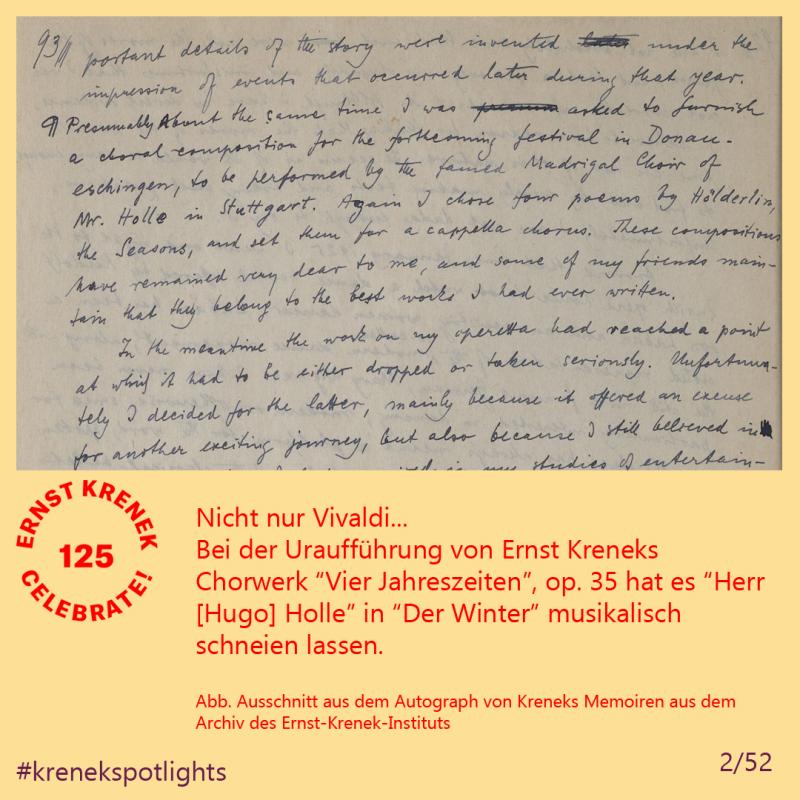 93//
portant details of the story were invented later under the
impression of events that occurred later during that year.
¶ Presumably About the same time I was asked to furnish
a choral composition for the forthcoming festival in Donau-
eschingen, to be performed by the famed Madrigal Choir of
Mr. Holle in Stuttgart. Again I chose four poems by Hölderlin,
the Seasons, and set them for a cappella chorus. These compositions
have remained very dear to me, and some of my friends main-
tain that they belong to the best works I had ever written.
In the meantime the work on my operetta had reached a point
at which it had to be either dropped or taken seriously. Unfortuna-
tely I decided for the latter, mainly because it offered an excuse
for another exciting journey, but also because I still believed in
in my studies of entertain-
ERNST KRENEK
125
CELEBRATE!
Nicht nur Vivaldi...
Bei der Uraufführung von Ernst Kreneks
Chorwerk “Vier Jahreszeiten”, op. 35 hat es “Herr
[Hugo] Holle” in “Der Winter” musikalisch
schneien lassen.
Abb. Ausschnitt aus dem Autograph von Kreneks Memoiren aus dem
Archiv des Ernst-Krenek-Instituts
#krenekspotlights
2/52